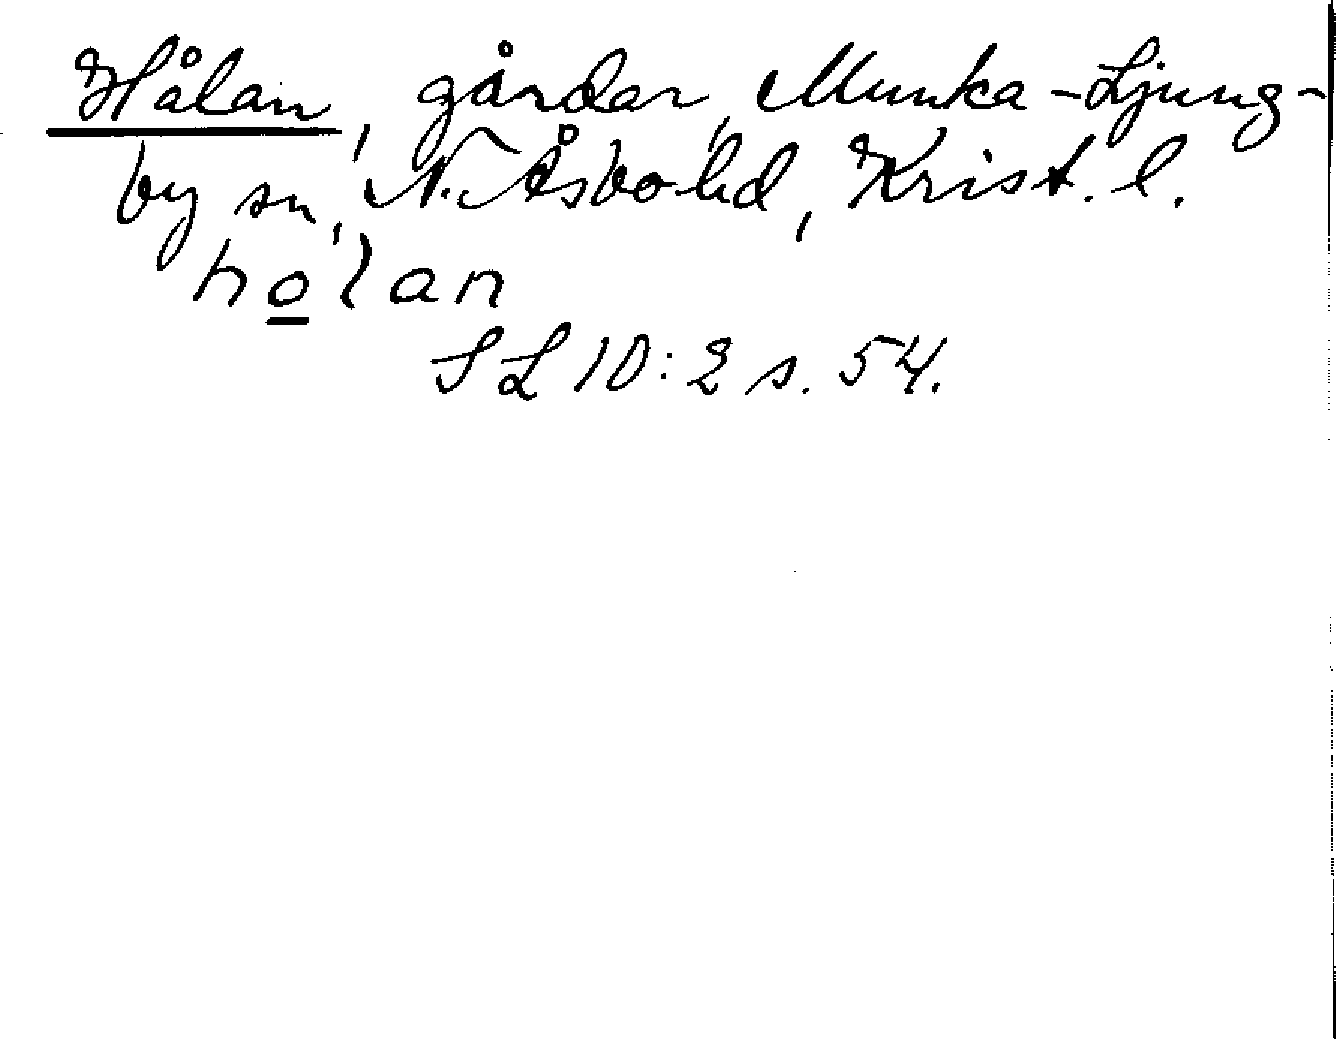 Hålan, gårdar, Munka-Ljung-
by sn, N. Åsbo hd, Krist. l.
ho̲lan
SL 10:2 s. 54.